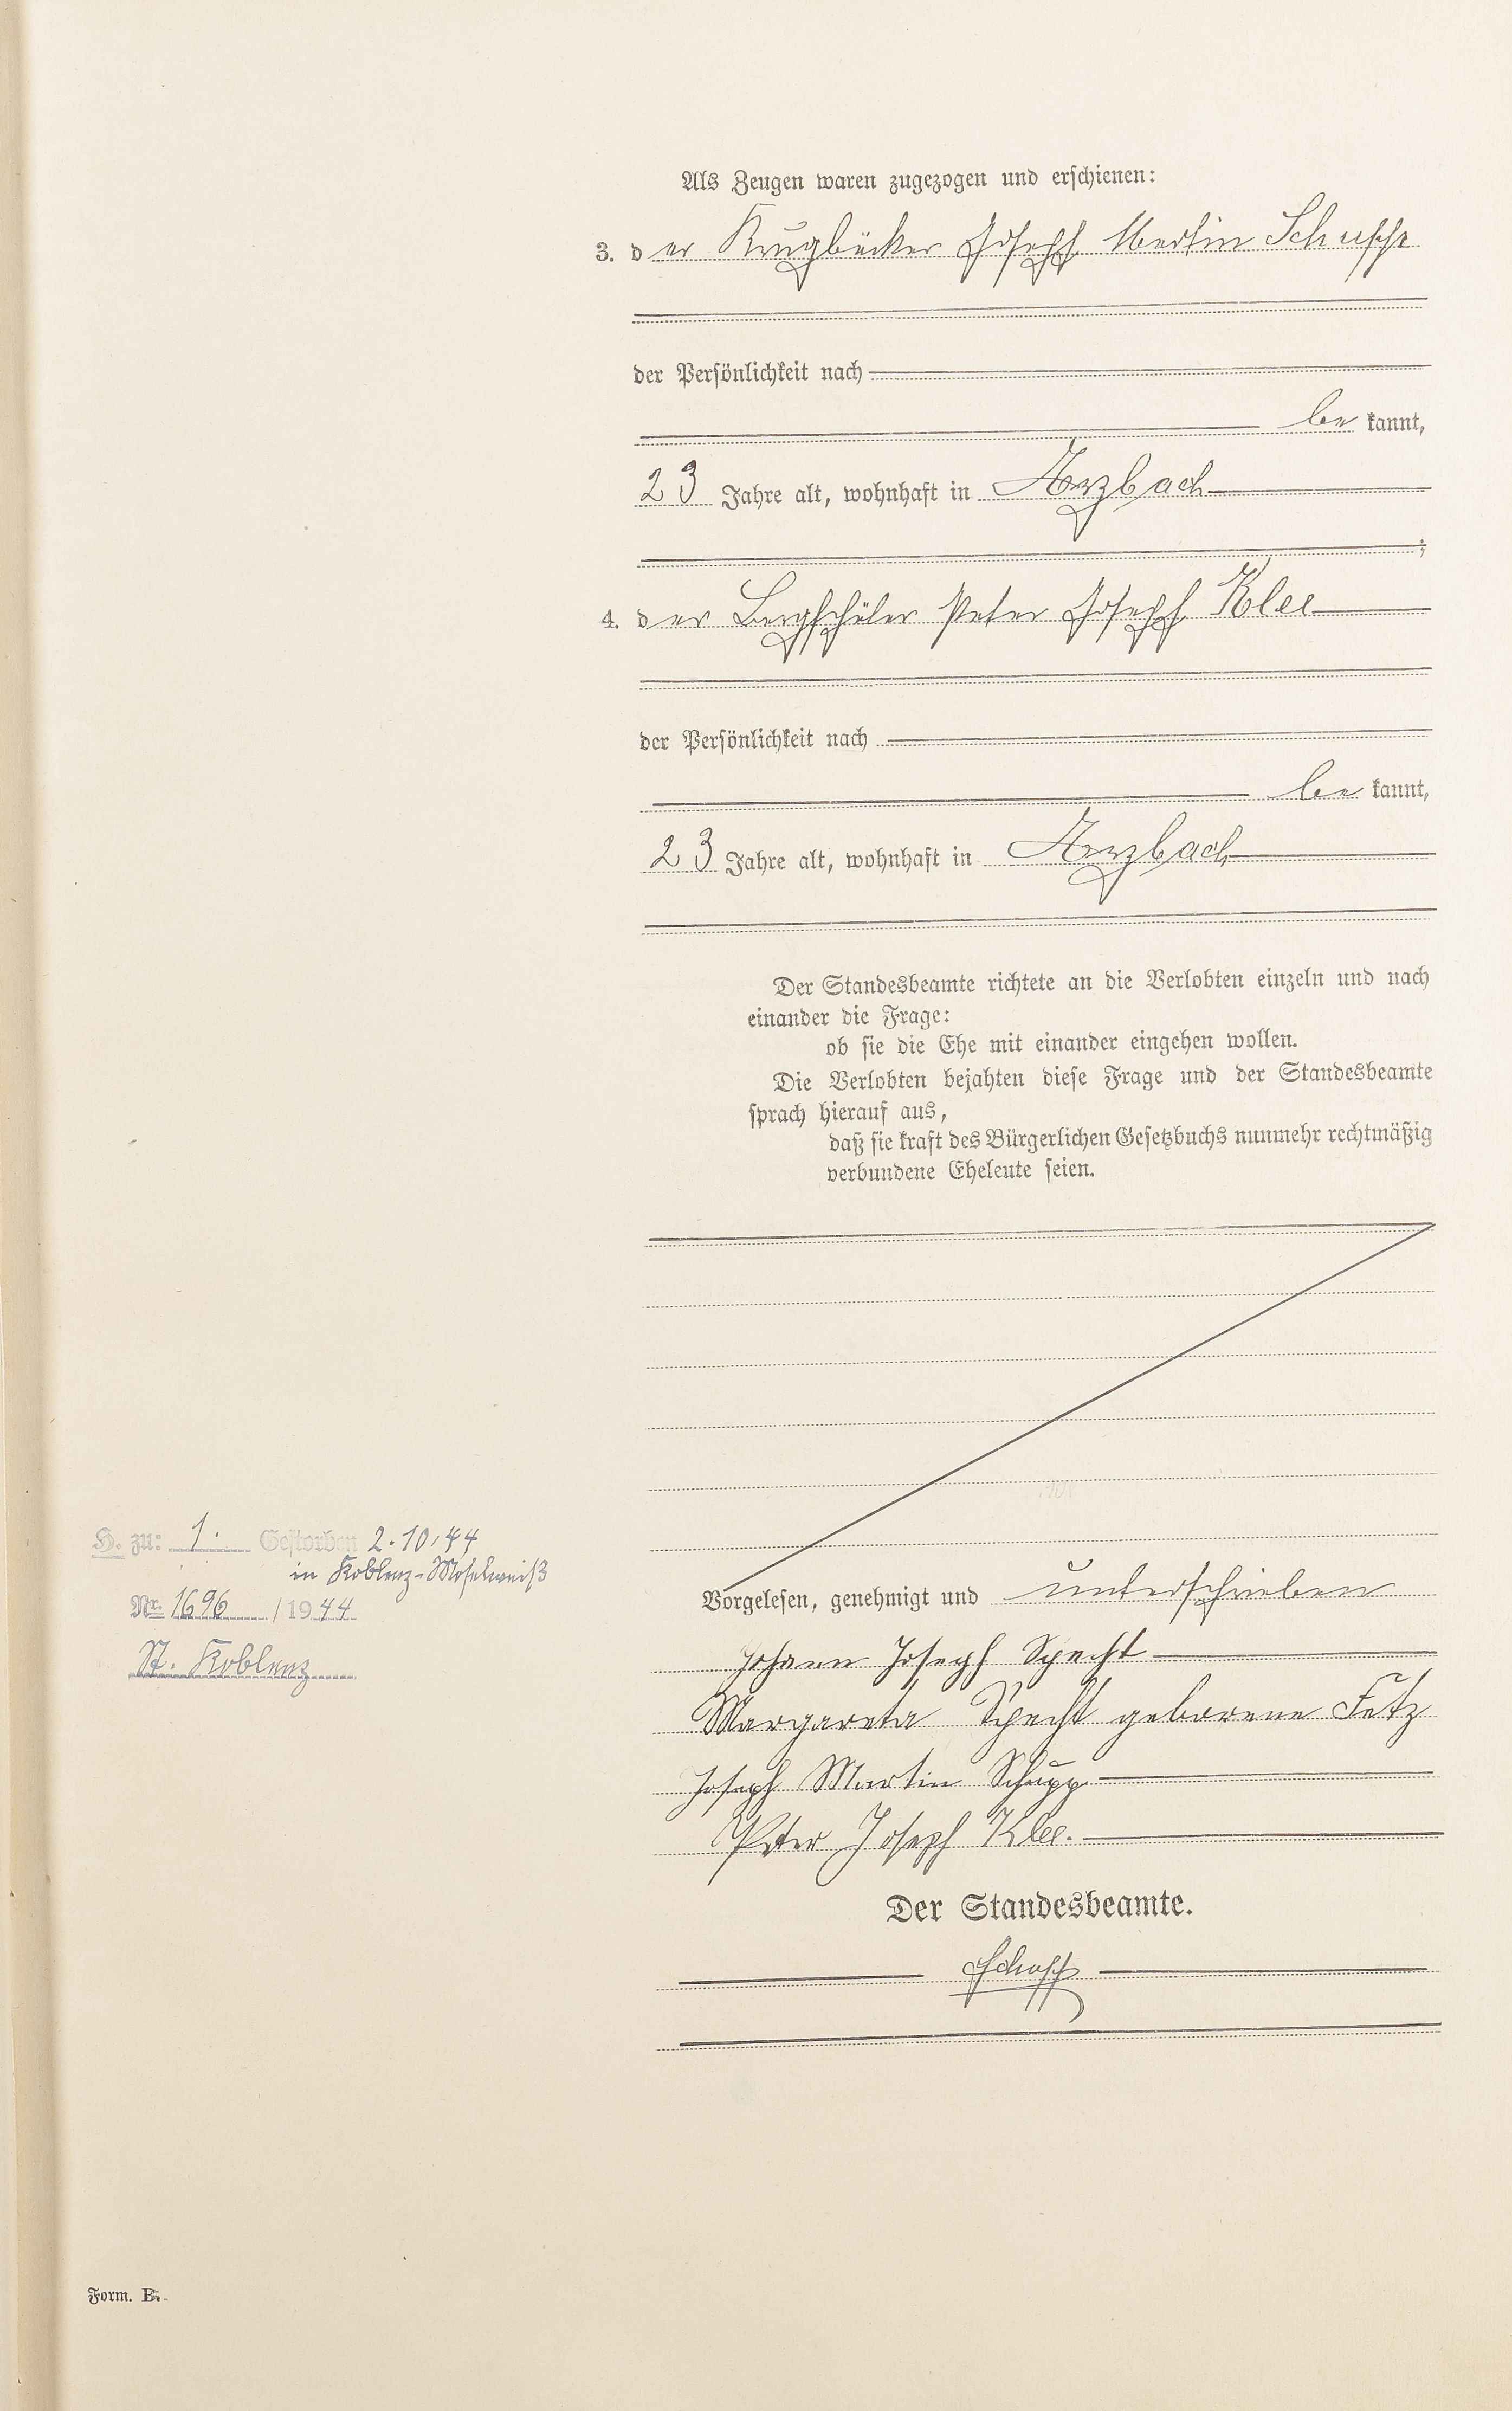 Als Zeugen waren zugezogen und erschienen:
3. der Krugbäcker Joseph Martin Schupp
der Persönlichkeit nach
bekannt,
23 Jahre alt, wohnhaft in Arzbach
;
4. der Bergschüler Peter Joseph Klee
der Persönlichkeit nach
bekannt,
23 Jahre alt, wohnhaft in Arzbach
Der Standesbeamte richtete an die Verlobten einzeln und nach
einander die Frage:
ob sie die Ehe mit einander eingehen wollen.
Die Verlobten bejahten diese Frage und der Standesbeamte
sprach hierauf aus,
daß sie kraft des Bürgerlichen Gesetzbuchs nunmehr rechtmäßig
verbundene Eheleute seien.
H. zu: 1. Gestorben 2.10.44
in Koblenz-Moselweiß
Nr. 1696 / 1944
St. Koblenz
Vorgelesen, genehmigt und unterschrieben
Johann Joseph Specht
Margareta Specht geborene Fetz
Joseph Martin Schupp
Peter Joseph Klee.
Der Standesbeamte.
Form. B.